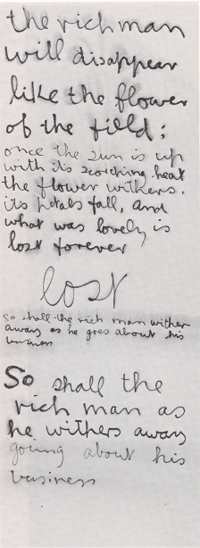 the rich man
will disappear
like the flower
of the field;
once the sun is up
with its scorching heat
the flower withers,
its petals fall, and
what was lovely is
lost forever
lost
so shall the rich man wither
away as he goes about his
business
So shall the
rich man as
he withers away
going about his
business